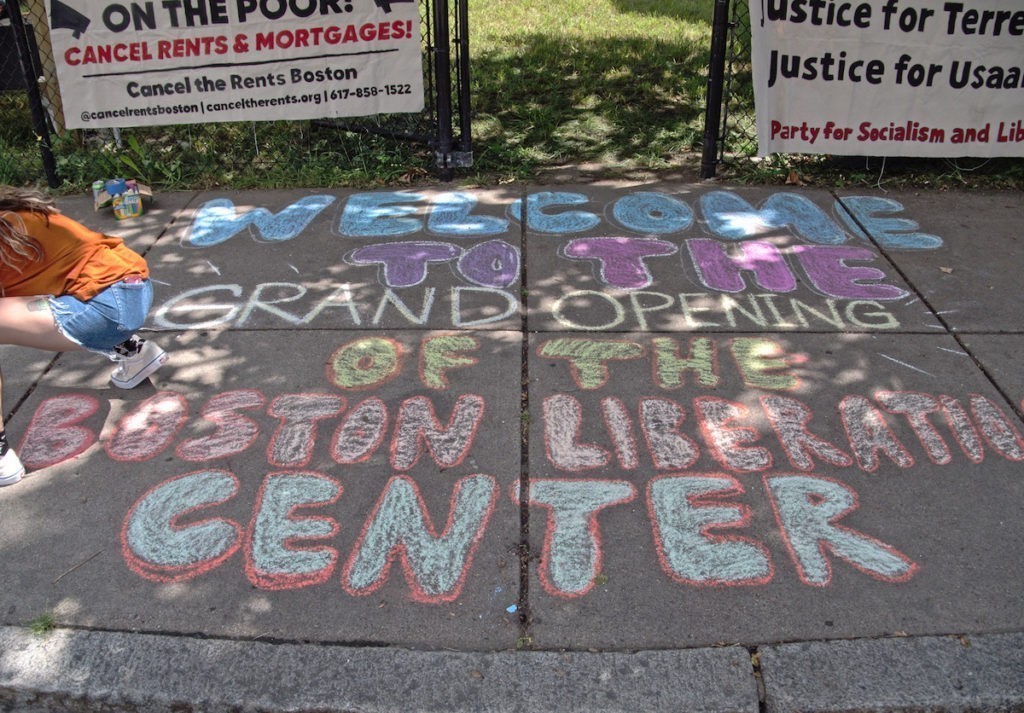 ON THE POOR!
CANCEL RENTS & MORTGAGES!
Cancel the Rents Boston
@cancelrentsboston | canceltherents.org | 617-858-1522
Justice for Terre
Justice for Usaa
Party for Socialism and Lib
WELCOME
TO THE
GRAND OPENING
OF THE
BOSTON LIBERATIO
CENTER